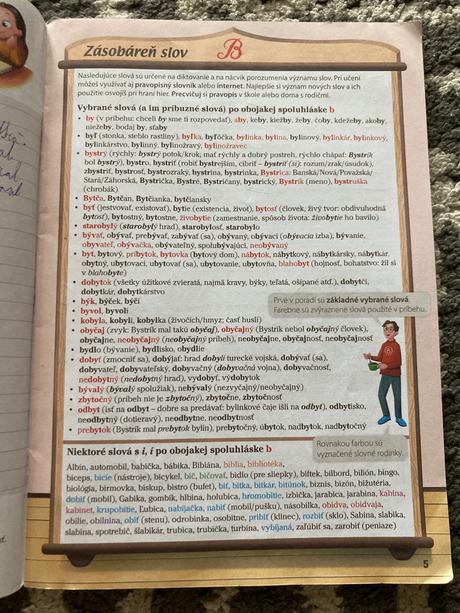 Zásobáreň slov B
Nasledujúce slová sú určené na diktovanie a na nácvik porozumenia významu slov. Pri učení
môžeš využívať aj pravopisný slovník alebo internet. Najlepšie si význam nových slov a ich
použitie osvojíš pri hraní hier. Precvičuj si pravopis v škole alebo doma s rodičmi.
Vybrané slová (a im príbuzné slová) po obojakej spoluhláske b
• by (v príbehu: chceli by sme ti rozpovedať), aby, keby, kiežby, žeby, čoby, kdežeby, akoby,
niežeby, bodaj by, sťaby
• byľ (stonka, steblo rastliny), byľka, byľôčka, bylinka, bylina, bylinový, bylinkár, bylinkový,
bylinkárstvo, bylinný, bylinožravý, bylinožravec
• bystrý (rýchly: bystrý potok/krok; mať rýchly a dobrý postreh, rýchlo chápať: Bystrík
bol bystrý), bystro, bystriť (robiť bystrejším, cibriť – bystriť (si): rozum/zrak/úsudok),
zbystriť, bystrosť, bystrozraký, bystrina, bystrinka, Bystrica: Banská/Nová/Považská/
Stará/Záhorská, Bystrička, Bystré, Bystričany, bystrický, Bystrík (meno), bystruška
(chrobák)
• Bytča, Bytčan, Bytčianka, bytčiansky
• byť (jestvovať, existovať), bytie (existencia, život), bytosť (človek, živý tvor: obdivuhodná
bytosť), bytostný, bytostne, živobytie (zamestnanie, spôsob života: živobytie ho bavilo)
• starobylý (starobylý hrad), starobylosť, starobylo
• bývať, obývať, prebývať, zabývať (sa), obývaný, obývací (obývacia izba), bývanie,
obyvateľ, obývačka, obývateľný, spolubývajúci, neobývaný
• byt, bytový, príbytok, bytovka (bytový dom), nábytok, nábytkový, nábytkársky, nábytkár,
obytný, ubytovací, ubytovať (sa), ubytovanie, ubytovňa, blahobyt (hojnosť, bohatstvo: žil si
v blahobyte)
• dobytok (všetky úžitkové zvieratá, najmä kravy, býky, teľatá, ošípané atď.), dobytčí,
dobytkár, dobytkárstvo
• býk, býček, býčí
• byvol, byvolí
• kobyla, kobylí, kobylka (živočích/hmyz; časť huslí)
• obyčaj (zvyk: Bystrík mal takú obyčaj), obyčajný (Bystrík nebol obyčajný človek),
obyčajne, neobyčajný (neobyčajný príbeh), neobyčajne, obyčajnosť, neobyčajnosť
• bydlo (bývanie), bydlisko, obydlie
• dobyť (zmocniť sa), dobýjať: hrad dobyli turecké vojská, dobývať (sa),
dobyvateľ, dobyvateľský, dobyvačný (dobyvačná vojna), dobyvačnosť,
nedobytný (nedobytný hrad), vydobyť, výdobytok
• bývalý (bývalý spolužiak), nebývalý (nezvyčajný/neobyčajný)
• zbytočný (príbeh nie je zbytočný), zbytočne, zbytočnosť
• odbyt (ísť na odbyt – dobre sa predávať: bylinkové čaje išli na odbyt), odbytisko,
neodbytný (dotieravý), neodbytne, neodbytnosť
• prebytok (Bystrík mal prebytok bylín), prebytočný, úbytok, nadbytok, nadbytočný
Prvé v poradí sú základné vybrané slová.
Farebne sú zvýraznené slová použité v príbehu.
Rovnakou farbou sú
vyznačené slovné rodinky.
Niektoré slová s i, í po obojakej spoluhláske b
Albín, automobil, babička, bábika, Bibiána, biblia, biblioteka,
biceps, bicie (nástroje), bicykel, bič, bičovať, bidlo (pre sliepky), biftek, bilbord, bilión, bingo,
biológia, birmovka, biskup, bistro (bufet), biť, bitka, bitkár, bitúnok, biznis, bizón, bižutéria,
dobiť (mobil), Gabika, gombík, hĺbina, holubica, hromobitie, izbička, jarabica, jarabina, kabína,
kabinet, krupobitie, Ľubica, nabíjačka, nabiť (mobil/pušku), násobilka, obidva, obidvaja,
obilie, obilnina, obiť (stenu), odrobinka, osobitne, pribiť (klinec), rozbiť (sklo), Sabína, slabika,
slabina, spotrebič, šlabikár, trubica, trubička, turbína, vybíjaná, zaľúbiť sa, zarobiť (peniaze)
5